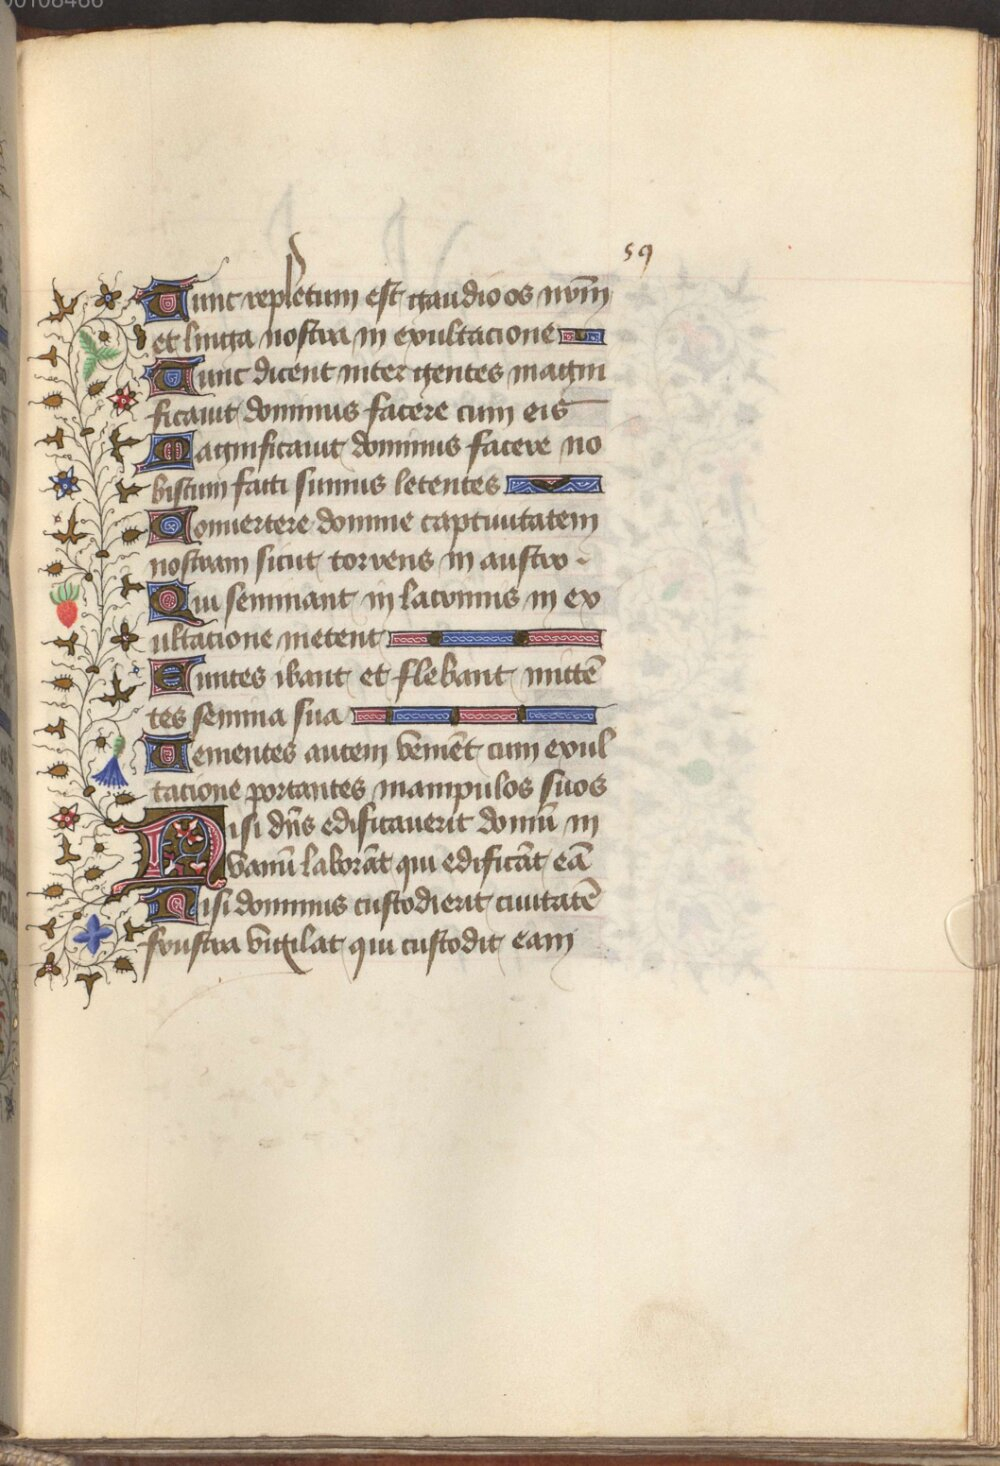 00108466
59
Tunc repletum est gaudio os nr̄m
et linga nostra in exultacione
Tunc dicent inter gentes magni
ficauit dominus facere cum eis
Magnificauit dominus facere no
biscum facti sumus letentes
Conuertere domine captiuitatem
nostram sicut torrens in austro
Qui seminant in lacrimis in ex
ultacione metent
Euntes ibant et flebant mittē
tes semina sua
Uementes autem venient cum exul
tacione portantes manipulos suos
Nisi dn̄s edificauerit domū in
vanū laborāt qui edificāt eā
Nisi dominus custodierit ciuitatē
frustra vigilat qui custodit eam